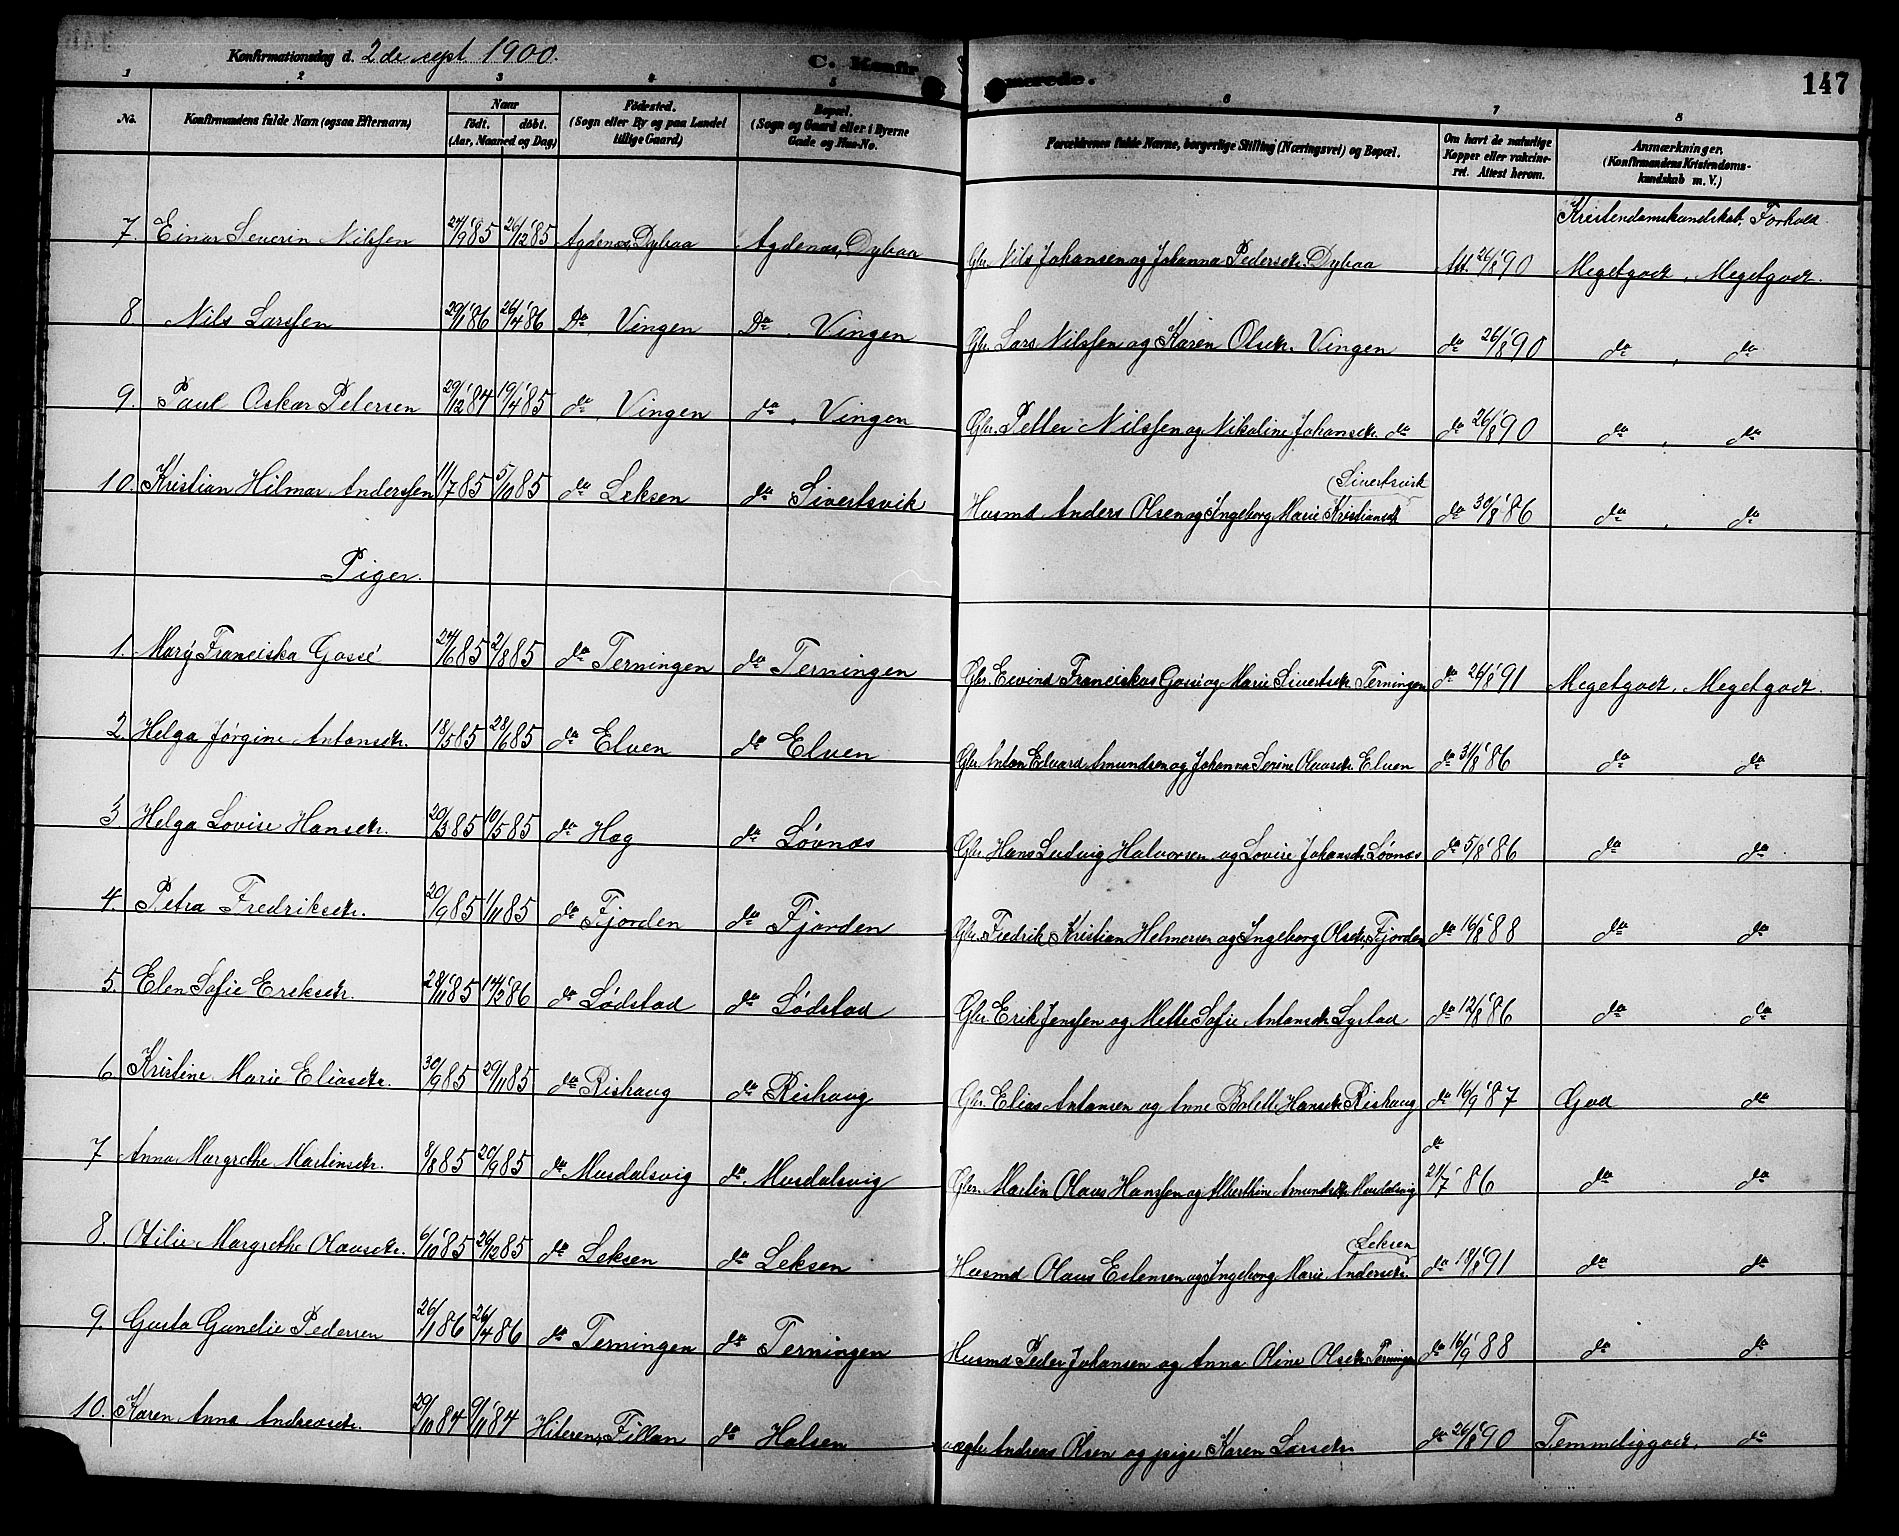 Konfirmationsdag d. 2de sept. 1900.
C. Konfirmerede.
147
1 2 3 4 5 6 7 8
No.
Konfirmandens fulde Navn (ogsaa Efternavn)
Naar
født. døbt.
(Aar, Maaned og Dag)
Fødested.
(Sogn eller By og paa Landet
tillige Gaard)
Bopæl.
(Sogn og Gaard eller i Byerne
Gade og Hus-No.
Forældrenes fulde Navne, borgerlige Stilling (Næringsvei) og Bopæl.
Om havt de naturlige
Kopper eller vakcine-
ret. Attest herom.
Anmærkninger.
(Konfirmandens Kristendoms-
kundskab m. V.)
Kristendomskundskab, Forhold
7. Einar Severin Nilssen 27/9 85 26/12 85 Agdenæs, Dybaa Agdenæs, Dybaa Gbr. Nils Johansen og Johanna Pedersdtr. Dybaa Att. 26/8 90 Megetgodt, Megetgodt.
8. Nils Larssen 29/1 86 26/4 86 Do, Vingen Do, Vingen Gbr. Lars Nilssen og Karen Olsdtr. Vingen do 26/8 90 do, do
9. Paul Oskar Petersen 29/12 84 19/4 85 do, Vingen do, Vingen Gbr. Petter Nilssen og Nikoline Johansdtr. do do 26/8 90 do, do
Sivertsvik
10. Kristian Hilmar Anderssen 11/7 85 5/10 85 do Leksen do Sivertsvik Husmd Anders Olsen og Ingeborg Marie Kristiansdtr do 30/8 86 do, do
Piger.
1. Mary Franciska Gossé 24/6 85 2/8 85 do Terningen do Terningen Gbr. Eivind Franciskus Gossé og Marie Sivertsdtr. Terningen do 26/8 91 Megetgodt, Megetgodt.
2. Helga Jørgine Antonsdtr. 18/5 85 28/6 85 do Elven do Elven Gbr. Anton Edvard Amundsen og Johanna Serine Olausdtr. Elven do 31/8 86 do do
3 Helga Lovise Hansdtr. 20/3 85 10/5 85 do Hog do Løvnæs Gbr. Hans Ludvig Halvorsen og Lovise Johansdtr. Løvnæs do 5/8 86 do do
4. Petra Fredriksdtr. 20/9 85 1/11 85 do Fjorden do Fjorden Gbr. Fredrik Kristian Helmersen og Ingeborg Olsdtr. Fjorden do 16/8 88 do do
5. Elen Sofie Eriksdtr. 28/11 85 14/2 86 do Lødstad do Lødstad Gbr. Erik Jenssen og Mette Sofie Antonsdtr. Lystad do 12/8 86 do do
6 Kristine Marie Eliasdtr. 30/9 85 29/11 85 do Rishaug do Rishaug Gbr. Elias Antonsen og Anne Bolette Hansdtr. Rishaug do 16/9 87 God do
do
7 Anna Margrethe Martinsdtr. 8/8 85 20/9 85 do Musdalsvig do Musdalsvig Gbr. Martin Olaus Hanssen og Alberthine Amundsdtr. Musdalsvig 21/7 86 do do
Leksen
8. Otilie Margrethe Olausdtr. 6/10 85 26/12 85 do Leksen do Leksen Husmd Olaus Estensen og Ingeborg Marie Andersdtr. do 18/8 91 do do
9. Gusta Gunelie Pedersen 26/1 86 26/4 86 do Terningen do Terningen Husmd Peder Johansen og Anna Oline Olsdtr. Terningen do 16/9 88 do do
10. Karen Anna Andreasdtr. 29/10 84 9/11 84 Hiteren, Fillan do Halsen Andreas Olsen og pige Karen Larsdtr do 26/8 90 Temmeliggodt, do